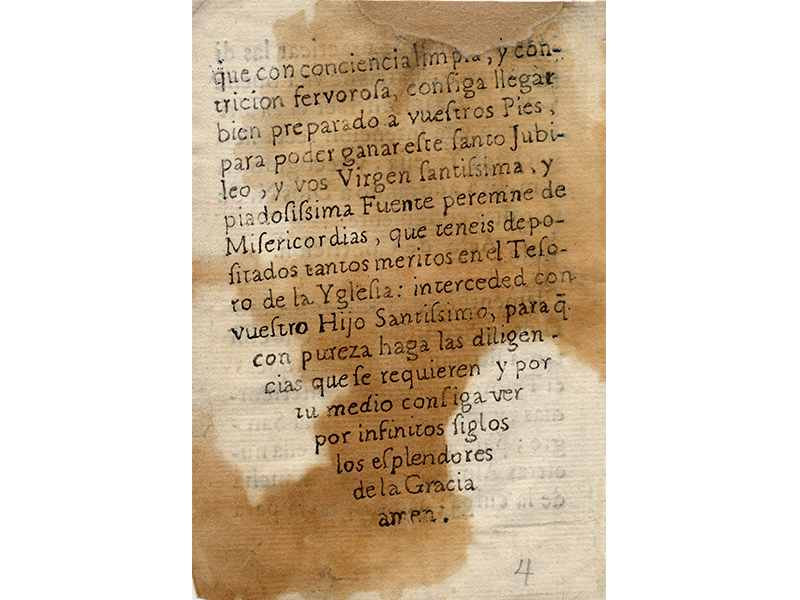 q̃ue con conciencia limpia, y con-
tricion fervoroſa, conſiga llegar
bien preparado a vueſtros Pies,
para poder ganar eſte ſanto Jubi-
leo, y vos Virgen ſantiſsima, y
piadoſiſsima Fuente peremne de
Miſericordias, que teneis depo-
ſitados tantos meritos en el Teſo-
ro de la Ygleſia: interceded con
vueſtro Hijo Santiſsimo, para q̃
con pureza haga las diligen-
cias que ſe requieren y por
tu medio conſiga ver
por infinitos ſiglos
los eſplendores
de la Gracia
amen.
4